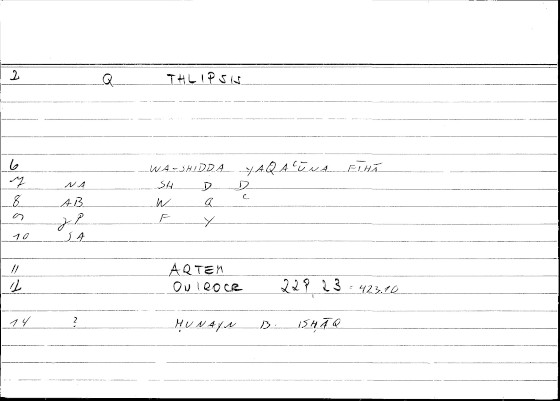 2 Q THLIPSIS
6 WA-SHIDDA YAQAʿŪNA FĪHĀ
7 NA SH D D
8 AB W Q ʿ
9 JP F Y
10 SA
11 ARTEM
12 OUIROCR 229,23 = 423.10
14 ? ḤUNAYN B. ISḤĀQ